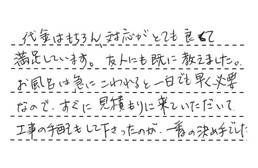 代金はもちろん、対応がとても良くて
満足しています。友人にも既に教えました。
お風呂は急にこわれると一日でも早く必要
なので、すぐに見積もりに来ていただいて
工事の手配をして下さったのが、一番の決め手でした